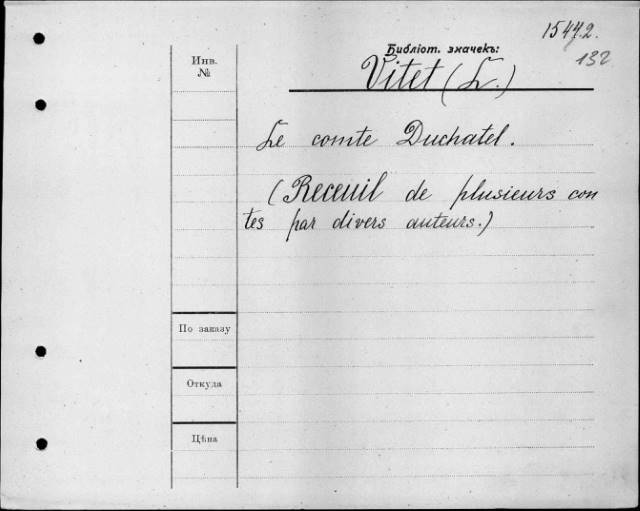 15472.
132
Библіот. значекъ:
Инв.
№
Vitet (L.)
Le comte Duchatel.
(Receuil de plusieurs con
tes par divers auteurs.)
По заказу
Откуда
Цѣна